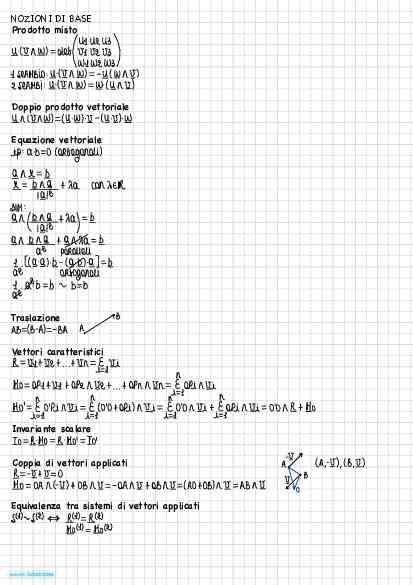 NOZIONI DI BASE
Prodotto misto
u·(v∧w)=det(u1 u2 u3
v1 v2 v3
w1 w2 w3)
1 scambio: u·(v∧w)=-u·(w∧v)
2 scambi: u·(v∧w)=w·(u∧v)
Doppio prodotto vettoriale
u∧(v∧w)=(u·w)·v-(u·v)·w
Equazione vettoriale
ip: a·b=0 (ortogonali)
a∧x=b
x=b∧a/|a|²+λa con λ∈ℝ
dim:
a∧(b∧a/|a|²+λa)=b
a∧b∧a/a²+a∧λa=b
paralleli
1/a²[(a·a)·b-(a·b)·a]=b
ortogonali
1/a²·a²b=b ~ b=b
Traslazione
AB=(B-A)=-BA A B
Vettori caratteristici
R=v1+v2+...+vn=Σ i=1 n vi
Mo=OP1∧v1+OP2∧v2+...+OPn∧vn=Σ i=1 n OPi∧vi
Mo'=Σ i=1 n O'Pi∧vi=Σ i=1 n (O'O+OPi)∧vi=Σ i=1 n O'O∧vi+Σ i=1 n OPi∧vi=O'O∧R+Mo
Invariante scalare
Io=R·Mo=R·Mo'=Io'
Coppia di vettori applicati
R=-v+v=0
Mo=OA∧(-v)+OB∧v=-OA∧v+OB∧v=(AO+OB)∧v=AB∧v
-v
A
B
v
O
(A,-v),(B,v)
Equivalenza tra sistemi di vettori applicati
S(1)~S(2) ⟺ R(1)=R(2)
Mo(1)=Mo(2)